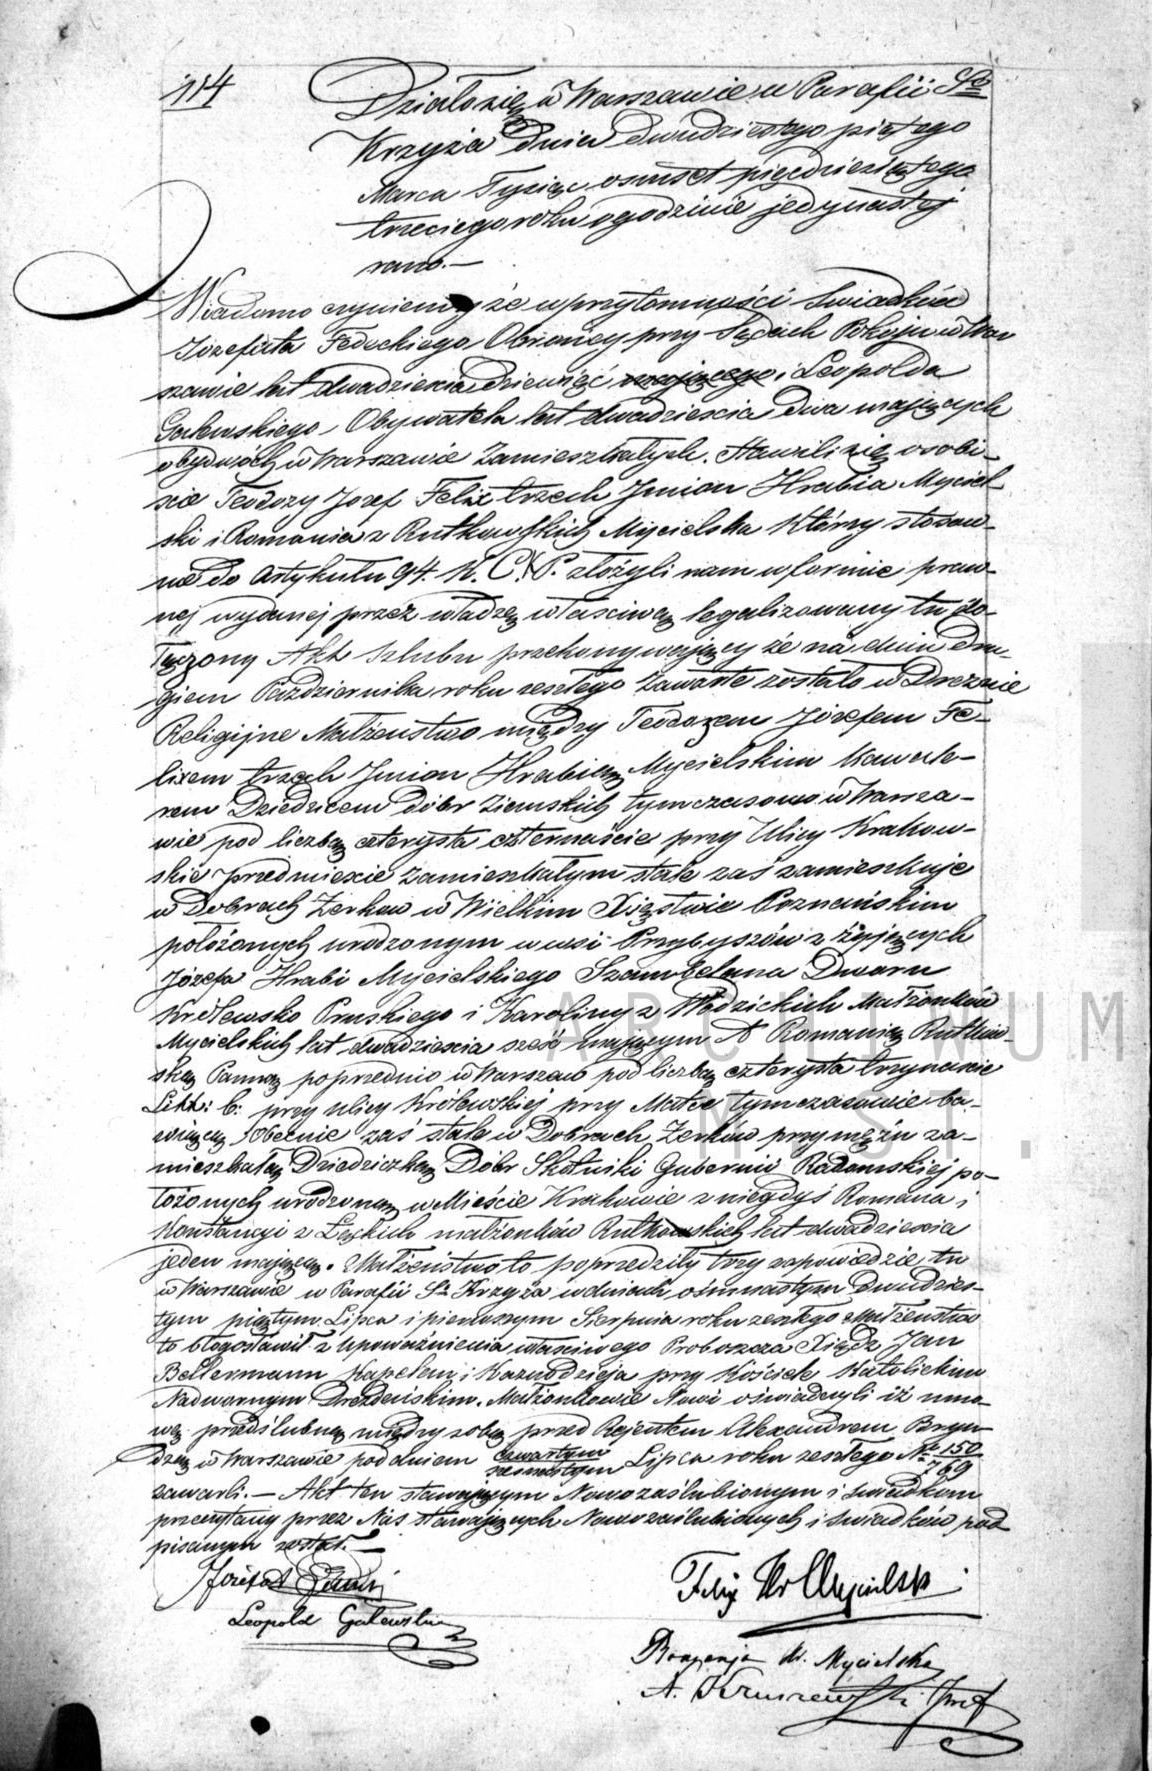 114
Działo się w Warszawie w Parafii Sgo
Krzyża Dnia dwudziestego piątego
Marca Tysiąc osmset pięćdziesiątego
trzeciego roku o godzinie jedynastej
rano.—
Wiadomo czyniemy że w przytomności Swiadków
Józefata Fedeckiego Obrońcy przy Sądach Pokoju w War
szawie lat dwadzieścia dziewięć mającego i Leopolda
Galewskiego, Obywatela lat dwadzieścia dwa mających
obydwóch w Warszawie Zamieszkałych. Stawili się osobi-
ście Teodozy Jozef Felix trzech Jmion Hrabia Myciel-
ski i Romania z Rutkowskich Mycielska którzy stosow-
nie do Artykułu 94. K. C. P. złożyli nam w formie praw-
nej wydanej przez władzę właściwą legalizowany tu do-
łączony Akt Szlubu przekonywający że na dniu Dru-
giem Października roku zeszłego Zawarte zostało w Dreznie
Religijne Małżeństwo między Teodozem Józefem Fe-
lixem trzech Jmion Hrabią Mycielskim Kawale-
rem Dziedzicem dóbr Ziemskich tymczasowo w Warsza-
wie pod liczbą czterysta czternaście przy Ulicy Krakow-
skie przedmieście Zamieszkałym stale zaś zamieszkuje
w Dobrach Zerkow w Wielkim Xięstwie Poznańskim
położonych urodzonym w wsi Przybyszów z żyjących
Józefa Hrabi Mycielskiego Szambelana Dworu
Królewsko Pruskiego i Karoliny z Wodzickich Małżonków
Mycielskich lat dwadzieścia sześć mającym A Romanią Rutkow-
ską Panną poprzednio w Warszawie pod liczbą czterysta trzynaście
Litt: b: przy ulicy Królewskiej przy Matce tymczasowie ba-
wiącą, Obecnie zaś stale w Dobrach Zerków przy mężu za-
mieszkałą Dziedziczką Dóbr Skotniki Gubernii Radomskiej po-
łożonych urodzoną w Mieście Krakowie z niegdyś Romana i
Konstancyi z Łąckich małżonków Rutkowskich lat dwadzieścia
jeden mającą. Małżeństwo to poprzedziły trzy zapowiedzie, tu
w Warszawie w Parafii Sgo Krzyża w dniach ośmnastym Dwudzies-
tym piątym Lipca i pierwszym Sierpnia roku zeszłego Małżeństwo
to błogosławił z upoważnienia właściwego Proboszcza Xiądz Jan
Bellermann Kapelan i Kaznodzieja przy Kościele Katolickim
Nadwornym Drezdeńskim. Małżonkowie Nowi oświadczyli iż umo-
wę przedślubną między sobą przed Rejentem Alexandrem Bryn
dzą w Warszawie pod dniem czwartym
Lipca roku zeszłego No 150/769
zawarli.— Akt ten stawającym Nowozaślubionym i swiadkom
przeczytany przez Nas stawających Nowozaślubionych i swiadków pod
pisanym został.—
Józefat
Felix Hr Mycielski
Leopold Galewski
Romania Hr. Mycielska
A.
ARCHIWUM
M.ST.